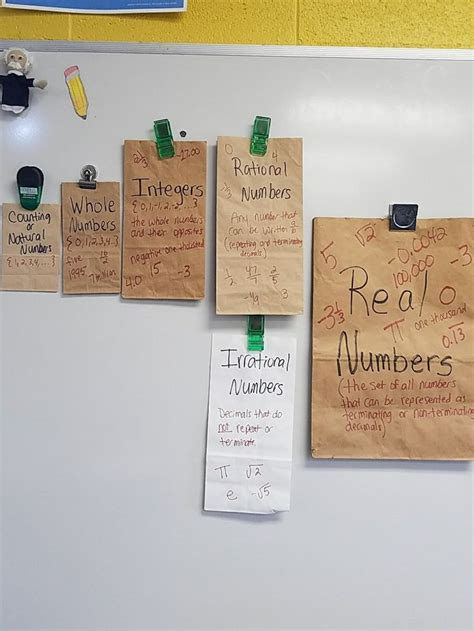 Counting or
Natural
Numbers
{1, 2, 3, 4, ...}
Whole
Numbers
{0, 1, 2, 3, 4, ...}
five
1995
7 million
-17.00
Integers
{0, 1, -1, 2, -2, ...}
the whole numbers
and their opposites
negative one thousand
4.0 15 -3
0 4
Rational
Numbers
Any number that
can be written
(repeating or terminating
decimals)
1/2 47/7 2/5
-49 3
Irrational
Numbers
Decimals that do
not repeat or
terminate.
π √2
e -√5
5 √2 -0.0042
100,000
Real 0
-3 1/3 π one thousand
Numbers 0.13
(the set of all numbers
that can be represented as
terminating or non-terminating
decimals)